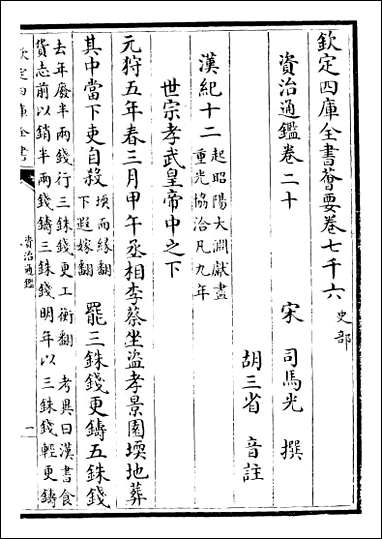 欽定四庫全書薈要卷七千六 史部
資治通鑑卷二十
宋 司馬光 撰
胡三省 音註
漢紀十二 起昭陽大淵獻盡
重光協洽凡九年
世宗孝武皇帝中之下
元狩五年春三月甲午丞相李蔡坐盜孝景園堧地葬
其中當下吏自殺 堧而緣翻
下遐嫁翻 罷三銖錢更鑄五銖錢
去年廢半兩錢行三銖錢更工衡翻 考異曰漢書食
貨志前以銷半兩錢鑄三銖錢明年以三銖錢輕更鑄
欽定四庫全書
資治通鑑
一